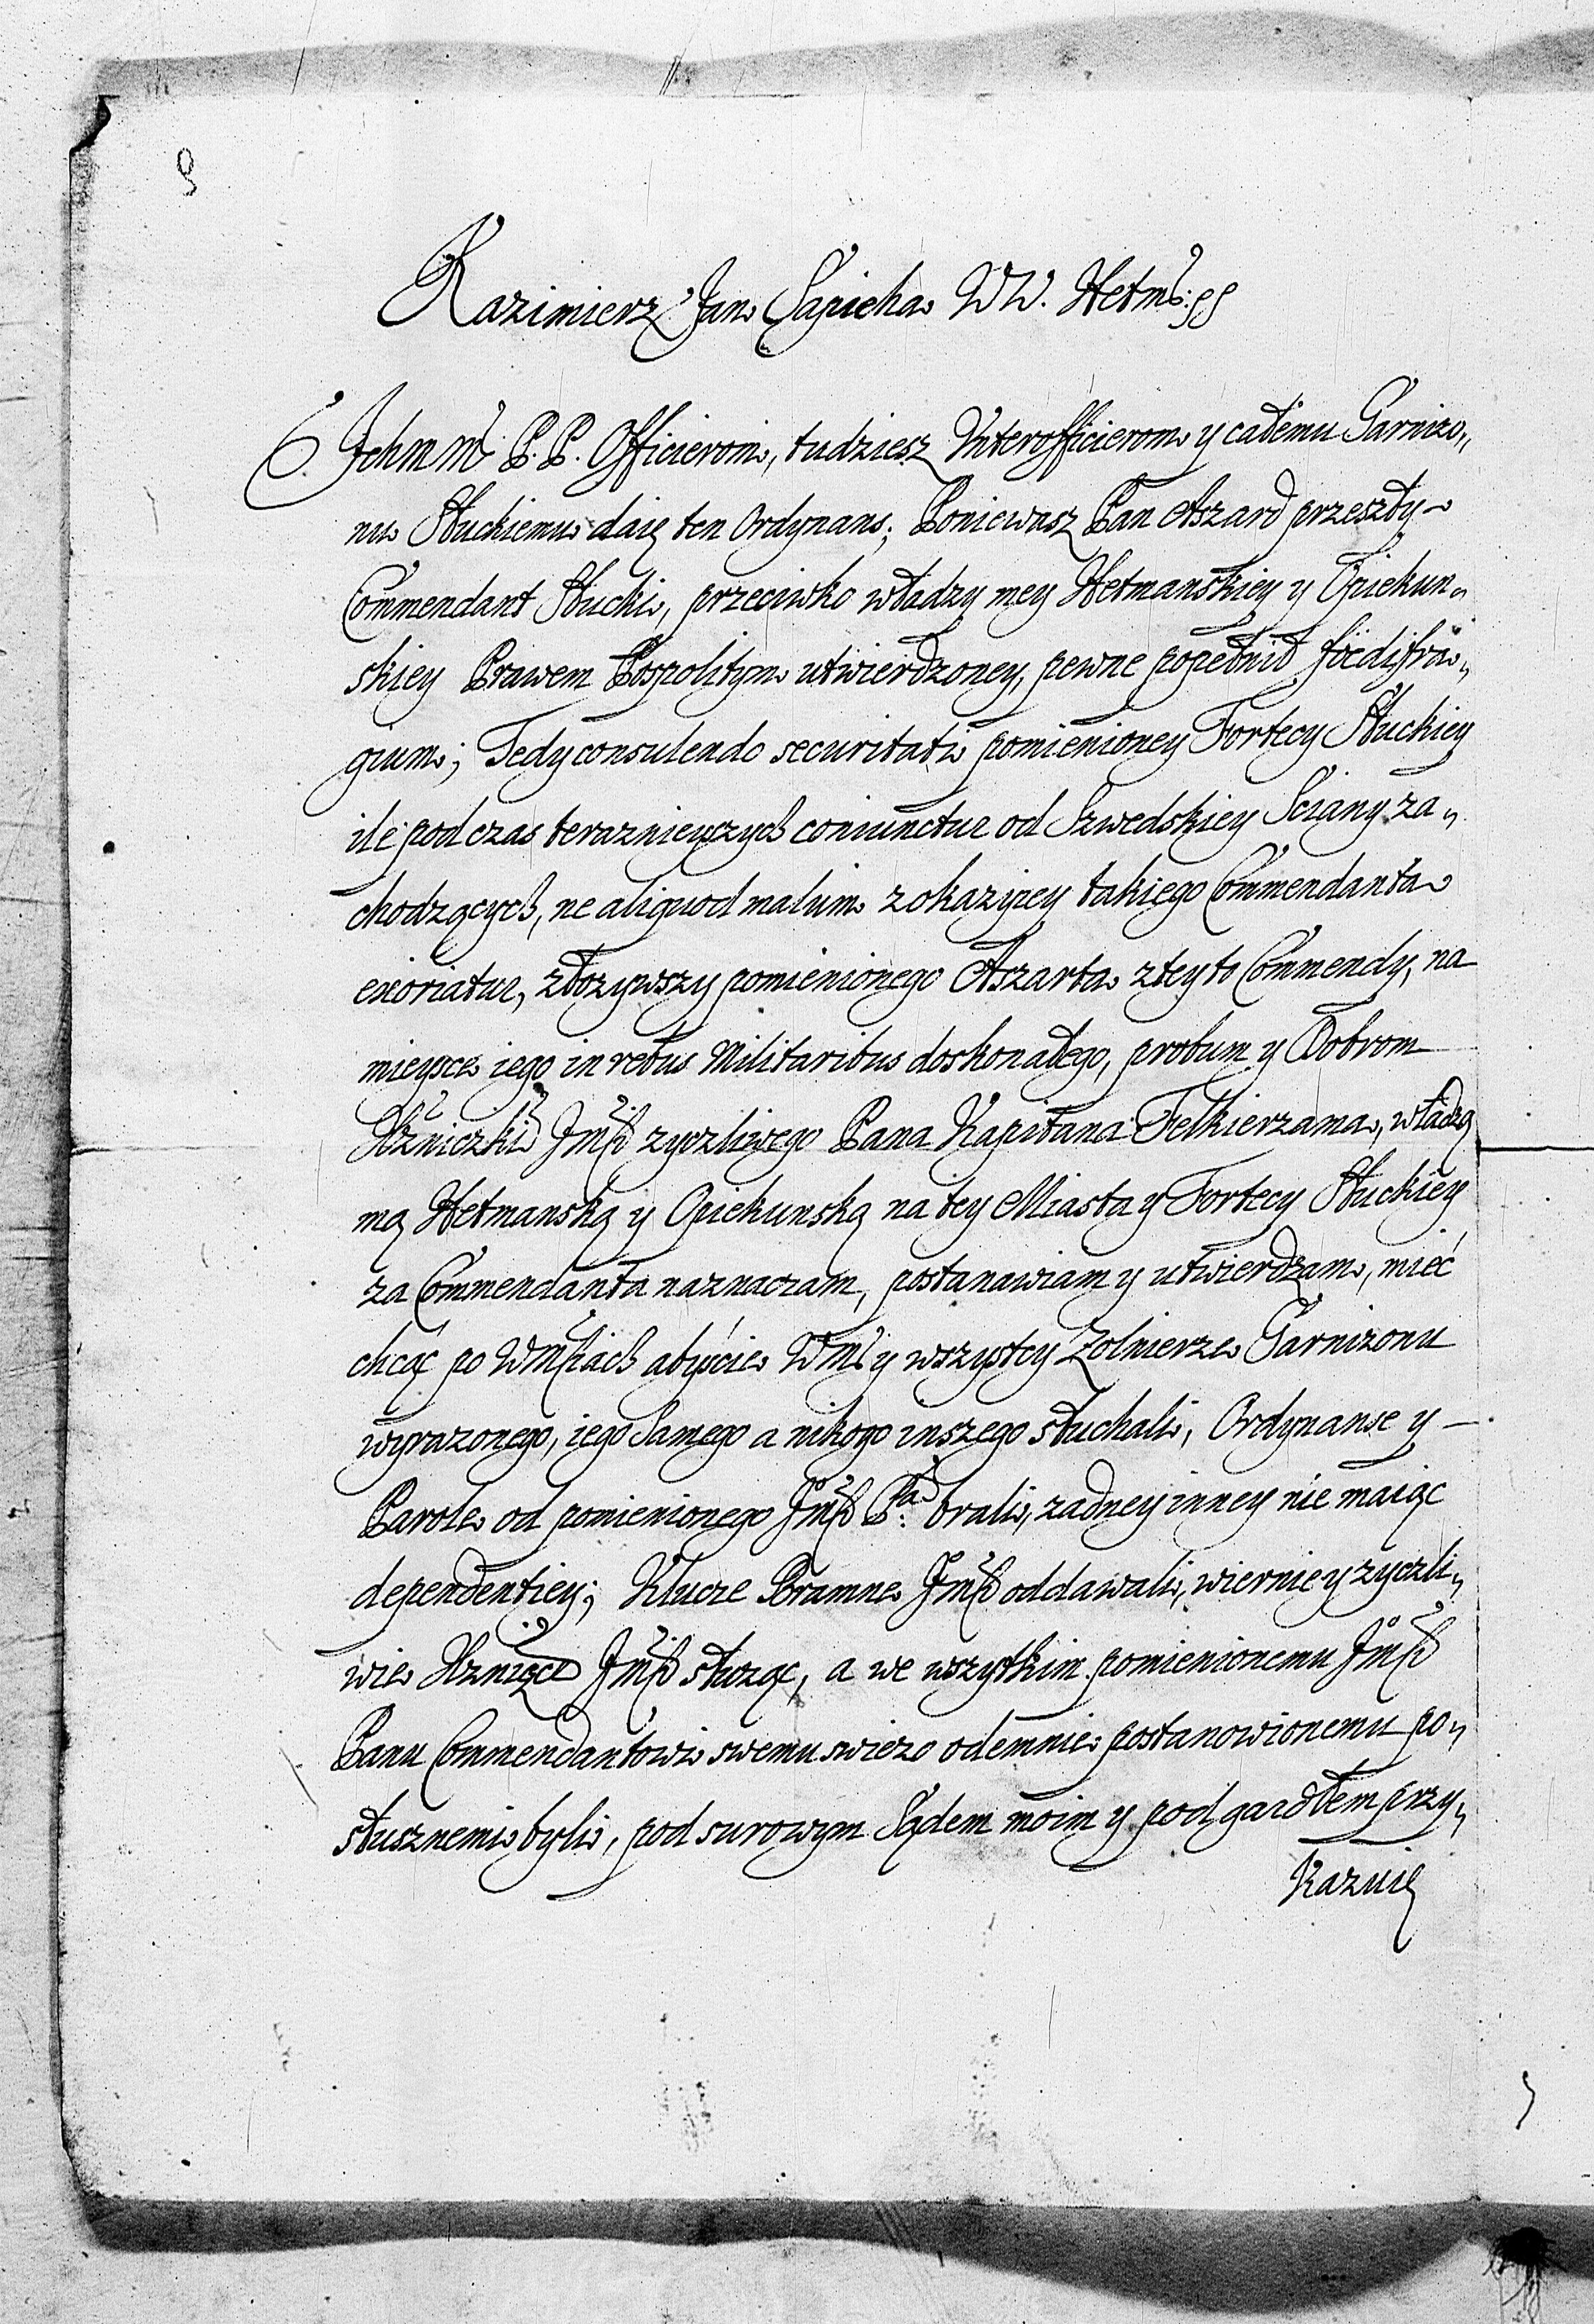 9
Kazimierz Jan Sapieha WW. Hetm:
Ichm P.P. Officierom, tudziesz Unterofficierom y całemu Garnizo„
nu Słuckiemu daię ten Ordynans; Poniewasz Pan Aszard przeszły
Commendant Słucki, przeciwko władzy mey Hetmanskiey y Opiekun„
skiey Prawem Pospolitym utwierdzoney, pewne popełnił foedifra„
gium; Tedy consulendo securitati pomienioney Fortecy Słuckiey
ile podczas teraznieyszych coniunctur od Szwedskiey Sciany za„
chodzących, ne aliquod malum z okazyiey takiego Commendanta
exoriatur, złozywszy pomienionego Aszarta z teyto Commendy, na
mieysce iego in rebus Militaribus doskonałego, probum y Dobrom
Xżniczki Jmśc zyczliwego Pana Kapitana Felkierzama, władzą
mą Hetmanską y Opiekunską na tey Miasta y Fortecy Słuckiey
za Commendanta naznaczam, postanawiam y utwierdzam, mieć
chcąc po Wmściach abyście Wm y wszyscy Zolnierze Garnizonu
wyrazonego, iego Samego a nikogo inszego słuchali, Ordynanse y
Parole od pomienionego Jmśc Pa: brali, zadney inney nie maiąc
dependentiey; Klucze Bramne Jmśc oddawali, wiernie y zyczli„
wie Jmśc słuząc, a we wszytkim pomienionemu Jmśc
Panu Commendantowi swemu swiezo odemnie postanowionemu po„
słusznemi byli, pod surowym Sądem moim y pod gardłem przy„
kazuię